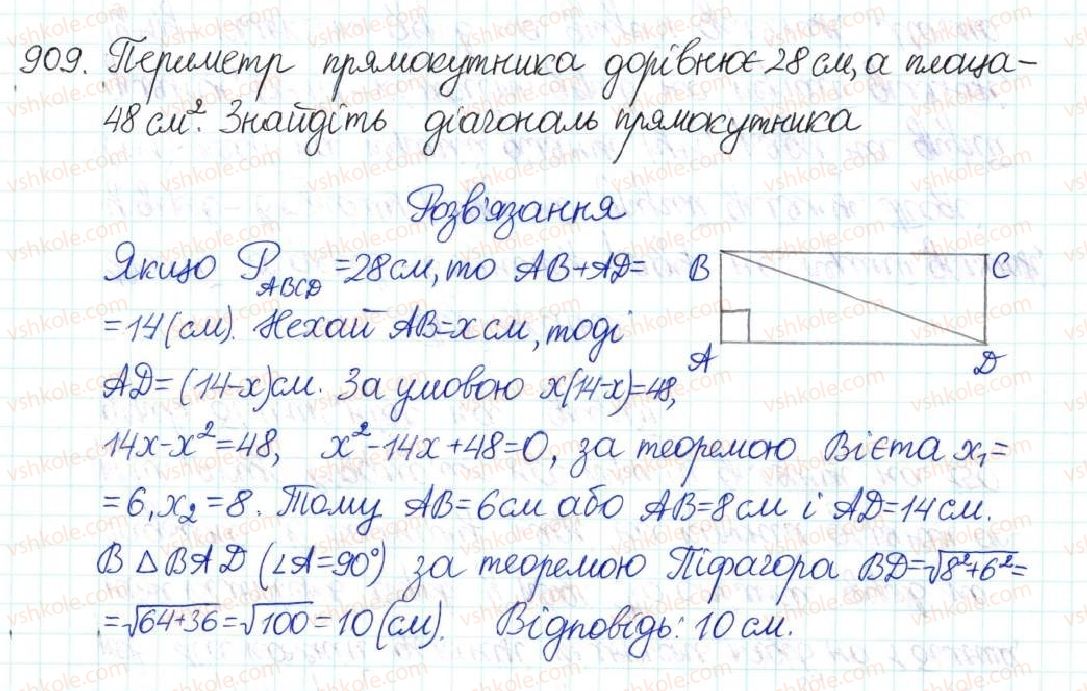 909. Периметр прямокутника дорівнює 28 см, а площа-
48 см². Знайдіть діагональ прямокутника
Розв'язання
Якщо P_ABCD = 28 см, то AB+AD=
=14 (см). Нехай AB=x см, тоді
AD=(14-x)см. За умовою x(14-x)=48,
14x-x²=48, x²-14x+48=0, за теоремою Вієта x₁=
=6, x₂=8. Тому AB=6 см або AB=8 см і AD=14 см.
В △BAD (∠A=90°) за теоремою Піфагора BD=√8²+6²=
=√64+36=√100=10 (см). Відповідь: 10 см.
B C
A D
vshkole.com